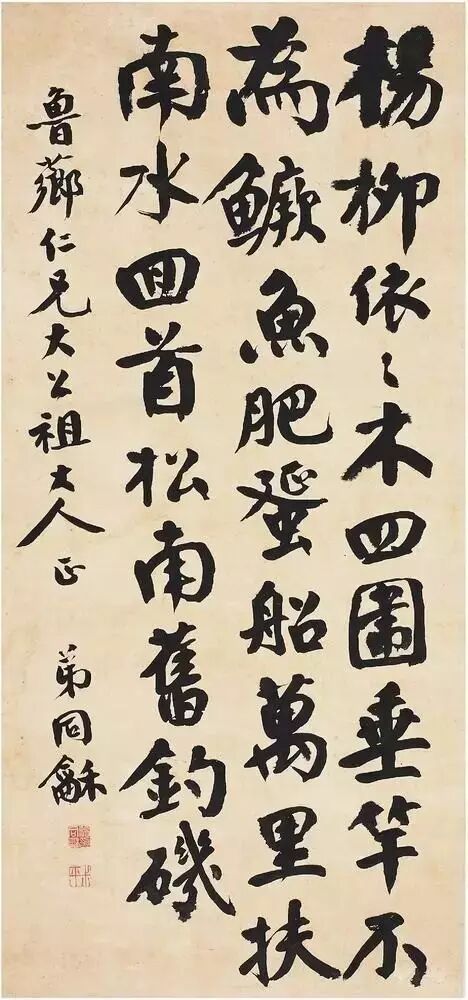 楊柳依〻木四圍垂竿不
為鱖魚肥蜑船萬里扶
南水囬首松南舊釣磯
魯薌仁兄大公祖大人正 弟同龢
叔平